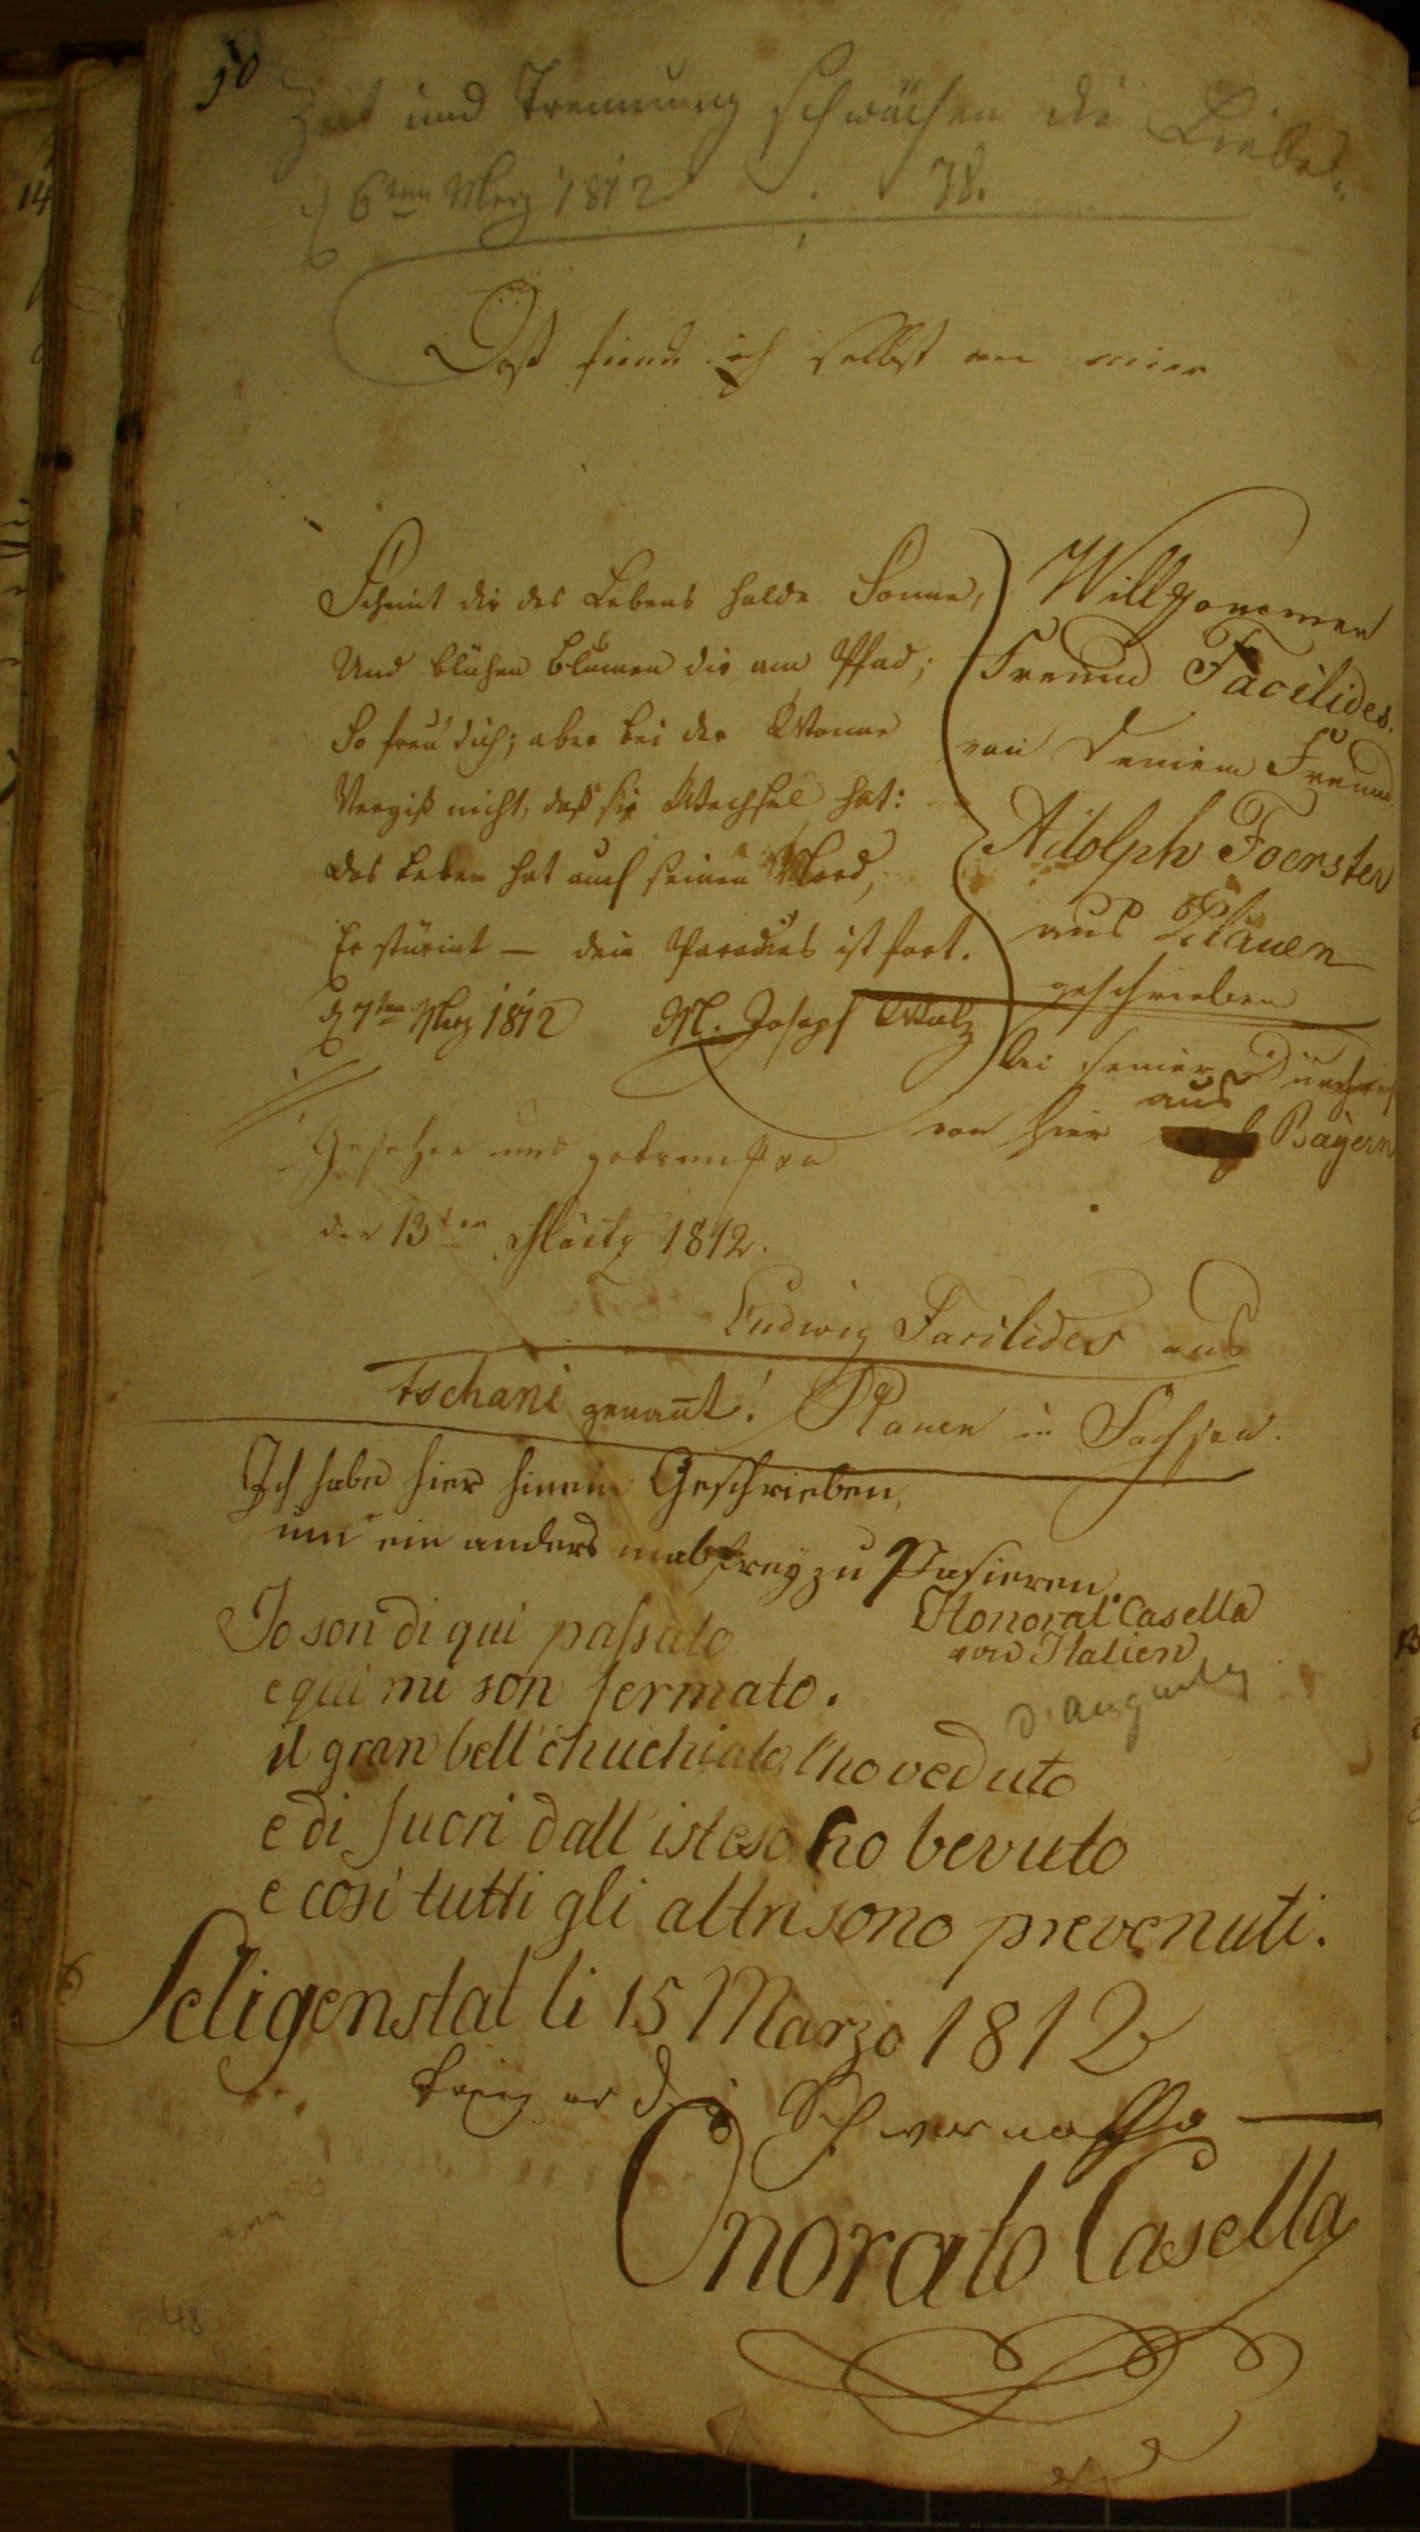 50
Zeit und Trennung schwächen die Liebe.
d 6ten Merz 1812
Daß finde ich selbst an mier
Scheint dir des Lebens holde Sonne,
Und blühen Blumen dir am Pfad;
So freu' dich; aber bei der Wonne
Vergiß nicht, daß sie Wechsel hat:
das Leben hat auch seinen Nord,
Er stürmt – dein Paradies ist fort.
d 7ten Merz 1812 M. Joseph Walz
Willgommen
Freund Facilides.
von Deinem Freund
Adolph Foerster
aus Plauen
geschrieben
bei seiner Durchreis
von hier aus Bayern
Gesehen und getrunken
den 13ten Märtz 1812.
Ludwig Facilides aus
tschani genant! Plauen in Sachsen.
Ich habe hier hinein Geschrieben,
um ein anders mal frey zu Pasieren.
Honorat Casella
von Italien
Io son di qui passato
e qui mi son fermato.
il gran bell' chuchiaio l'ho veduto
e di fuori dall' isteso ho bevuto
e cosi tutti gli altri sono prevenuti.
Seligenstat li 15 Marzo 1812
Onorato Casella
48